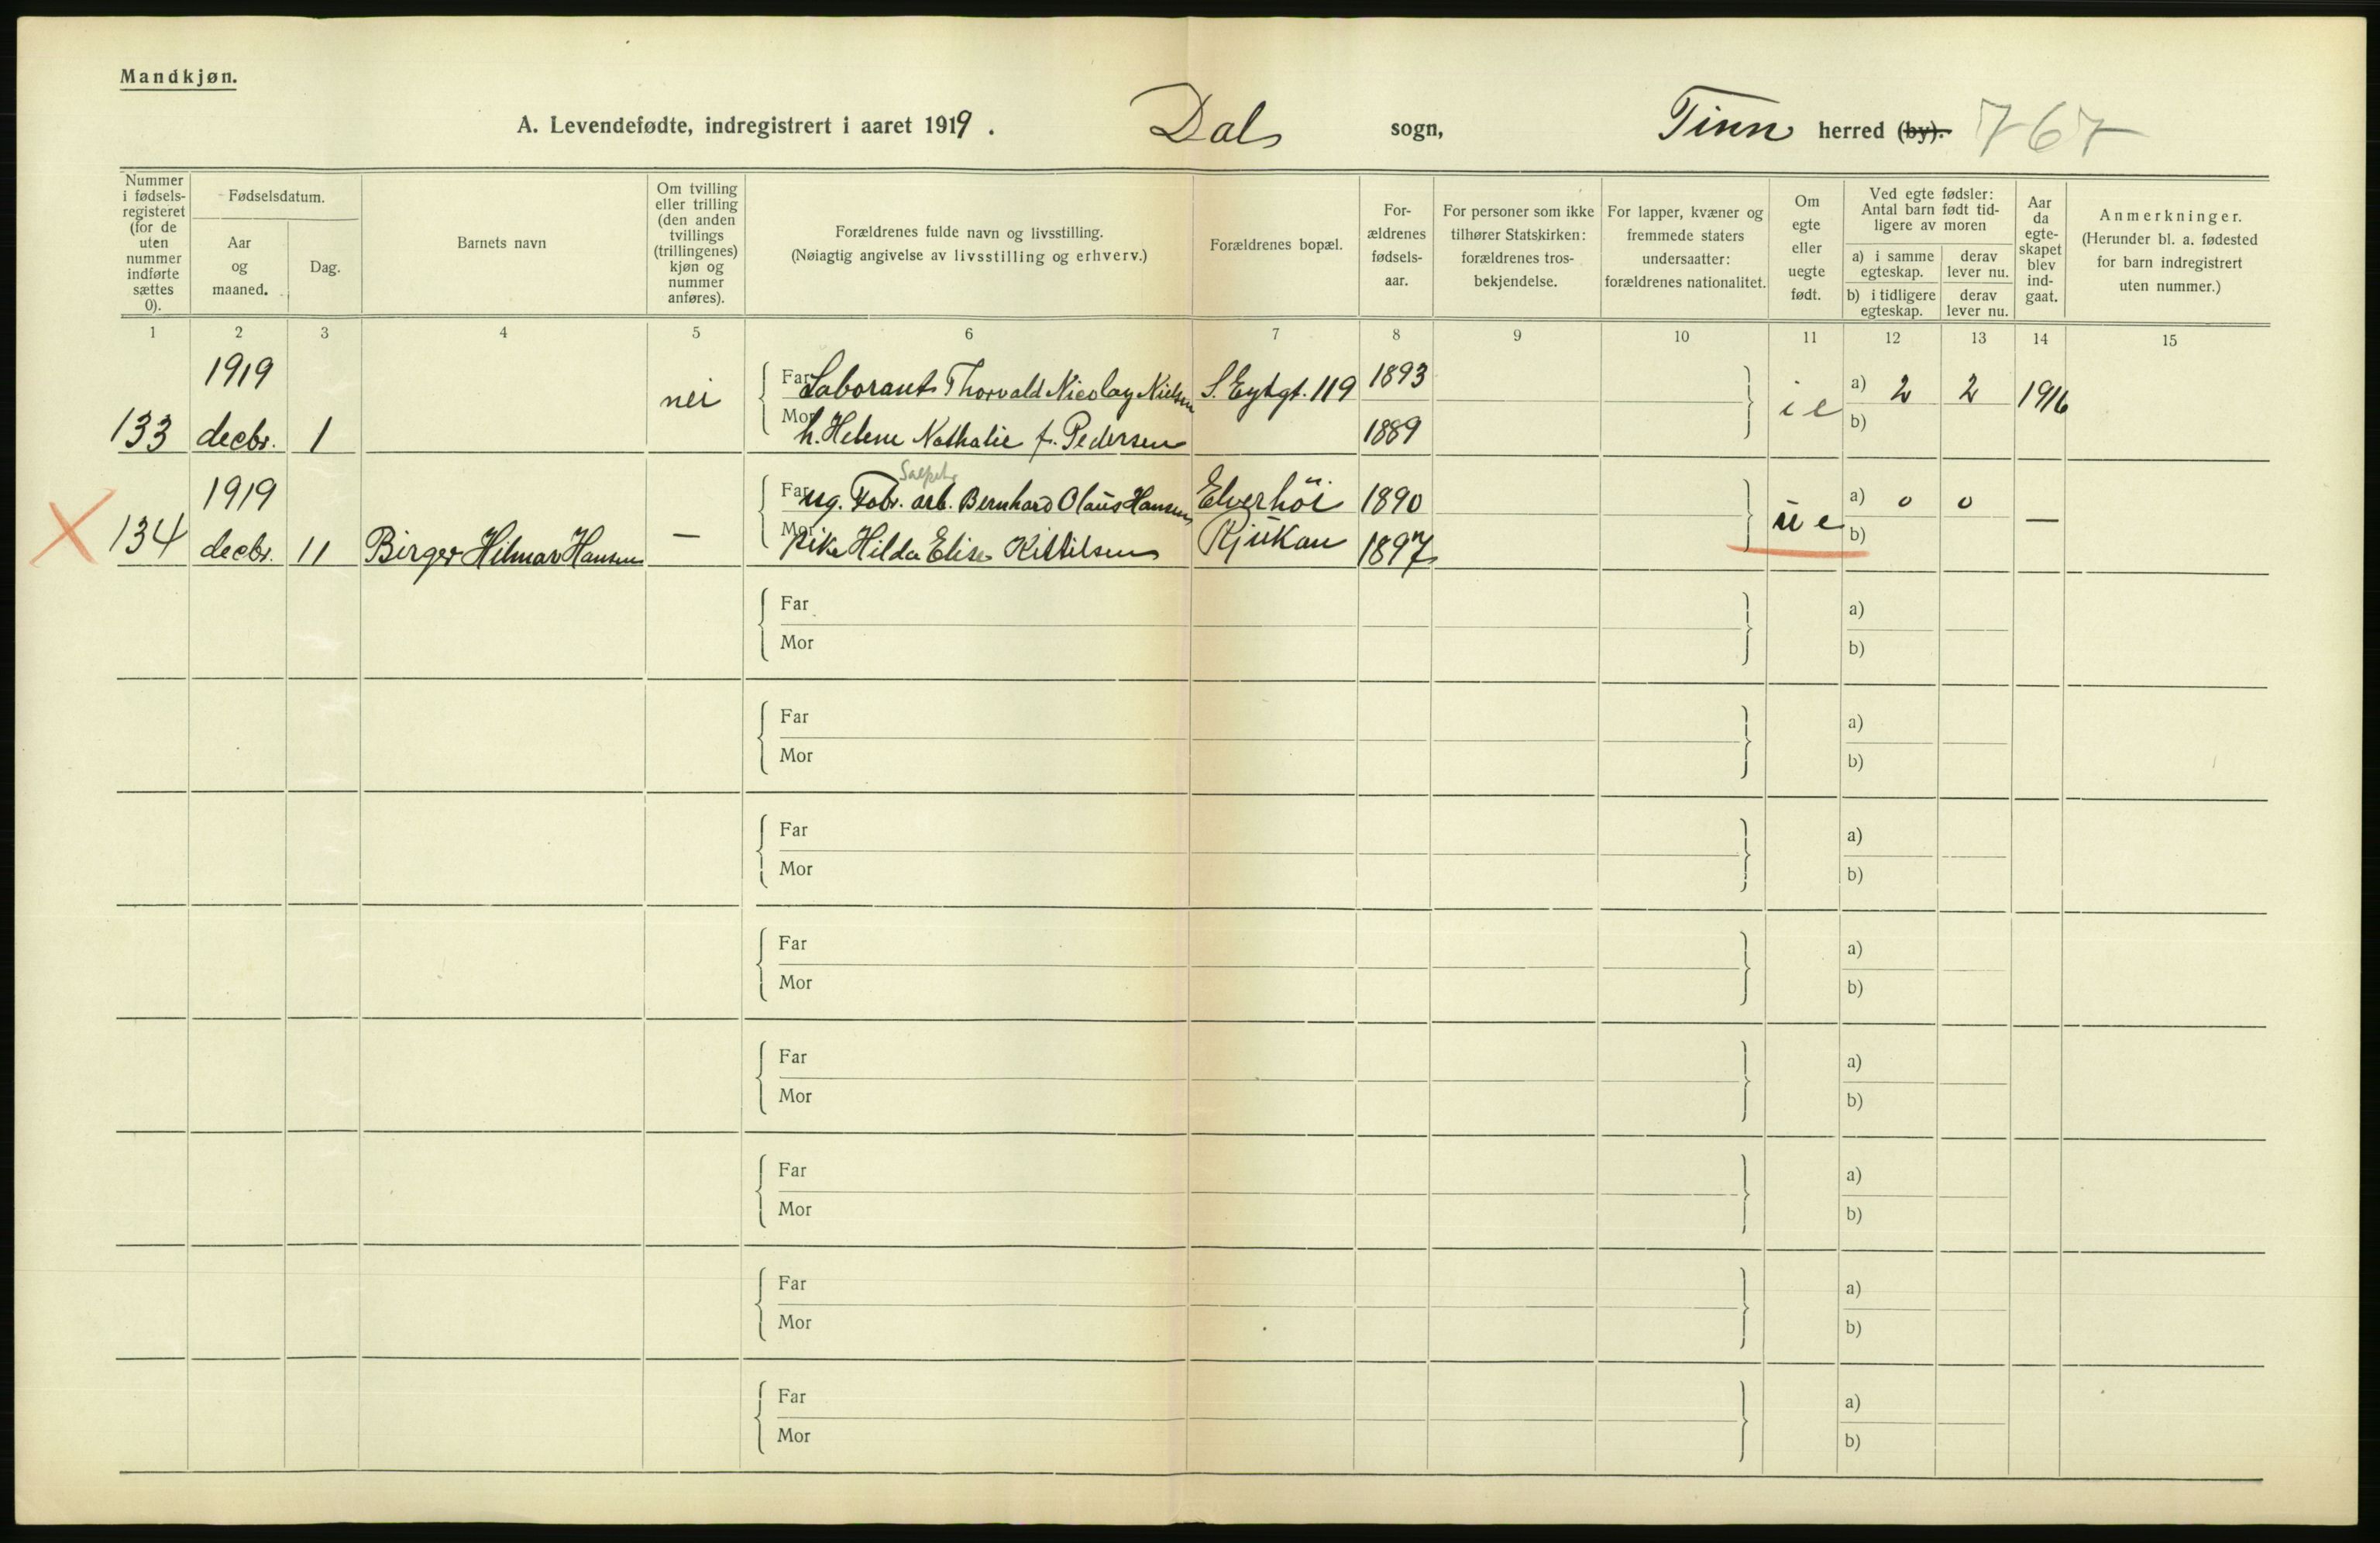 Mandkjøn.
A. Levendefødte, indregistrert i aaret 1919. Dals sogn, Tinn herred (by). 767
Nummer i fødsels-registeret (for de uten nummer indførte sættes 0).
Fødselsdatum.
Aar og maaned.
Dag.
Barnets navn
Om tvilling eller trilling (den anden tvillings (trillingenes) kjøn og nummer anføres).
Forældrenes fulde navn og livsstilling.
(Nøiagtig angivelse av livsstilling og erhverv.)
Forældrenes bopæl.
For-ældrenes fødsels-aar.
For personer som ikke tilhører Statskirken: forældrenes tros-bekjendelse.
For lapper, kvæner og fremmede staters undersaatter: forældrenes nationalitet.
Om egte eller uegte født.
Ved egte fødsler: Antal barn født tid-ligere av moren
a) i samme egteskap.
derav lever nu.
b) i tidligere egteskap.
derav lever nu.
Aar da egte-skapet blev ind-gaat.
Anmerkninger.
(Herunder bl. a. fødested for barn indregistrert uten nummer.)
1 2 3 4 5 6 7 8 9 10 11 12 13 14 15
1919 nei Far Laborant Thorvald Nicolay Nielsen S. Eytgt. 119 1893 i e a) 2 2 1916
133 decbr. 1 Mor h. Helene Nathalie f. Pedersen 1889 b)
Salpet
1919 Far ug. Fabr. arb. Bernhard Olaus Hansen Elverhöi 1890 u e a) 0 0 —
134 decbr. 11 Birger Hilmar Hansen — Mor Pike Hilda Elise Kittilsen Rjukan 1897 b)
Far a)
Mor b)
Far a)
Mor b)
Far a)
Mor b)
Far a)
Mor b)
Far a)
Mor b)
Far a)
Mor b)
Far a)
Mor b)
Far a)
Mor b)